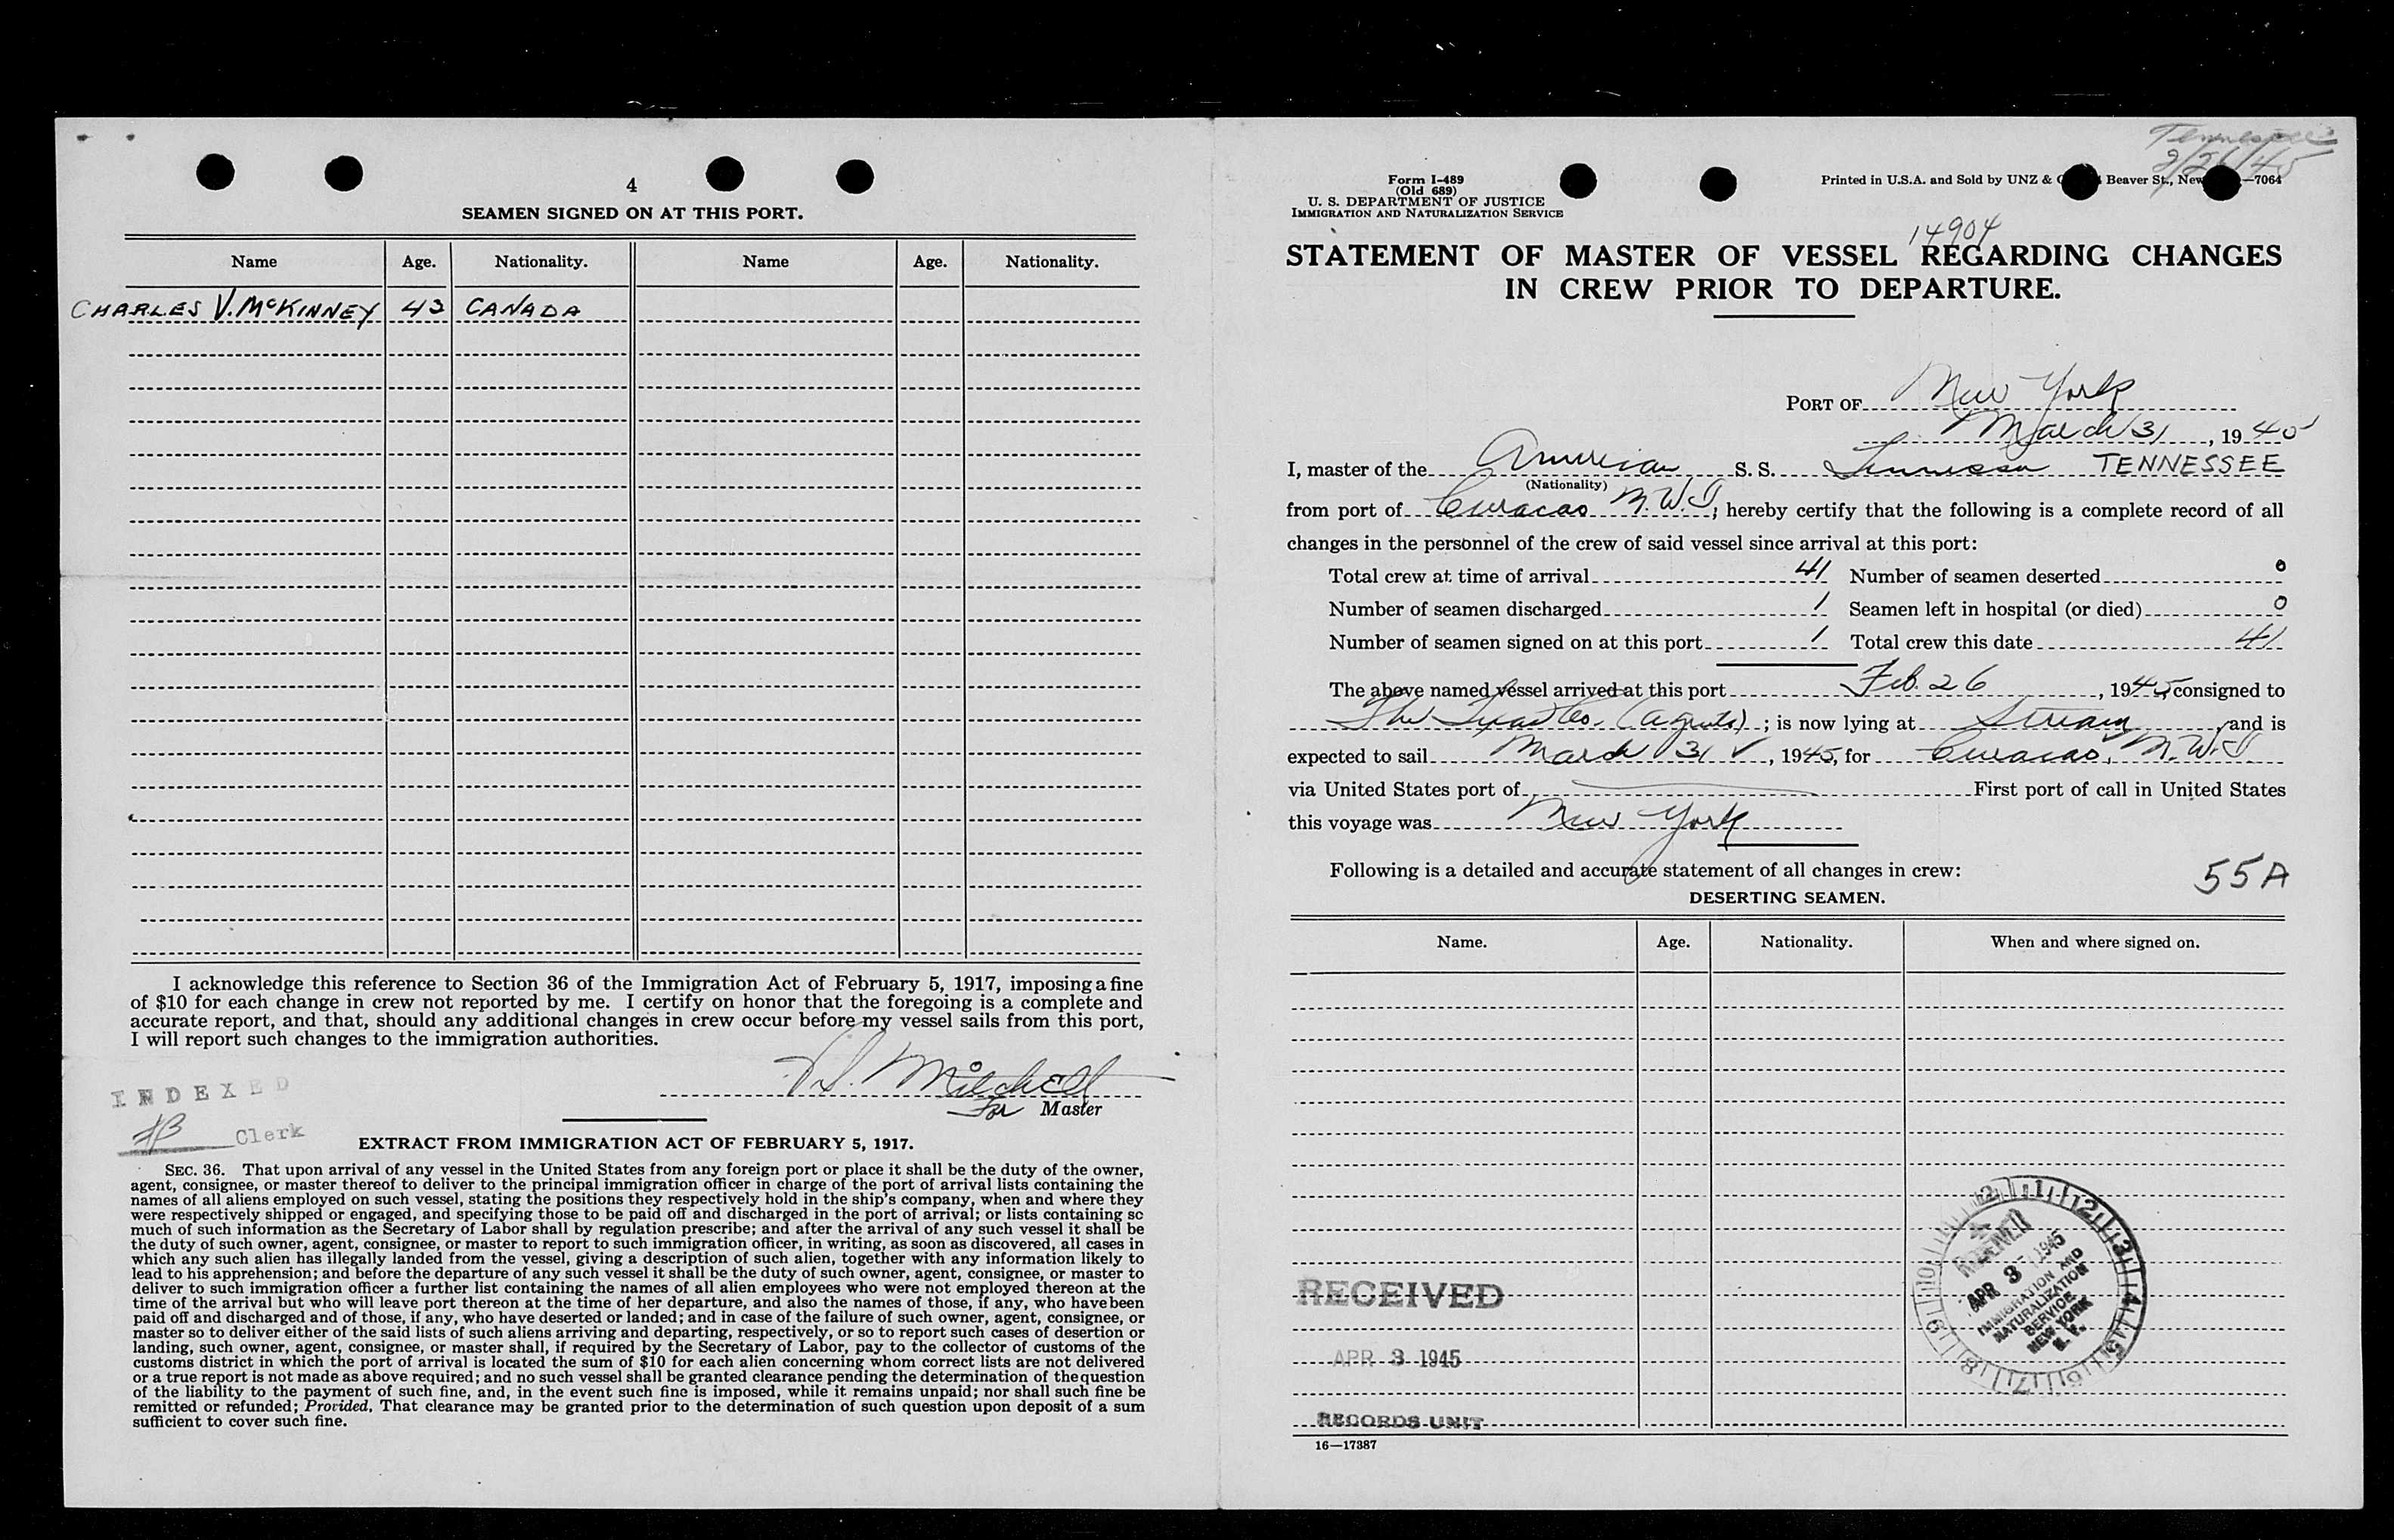 4
SEAMEN SIGNED ON AT THIS PORT.
Name Age. Nationality. Name Age. Nationality.
CHARLES V. McKINNEY 43 CANADA
I acknowledge this reference to Section 36 of the Immigration Act of February 5, 1917, imposing a fine
of $10 for each change in crew not reported by me. I certify on honor that the foregoing is a complete and
accurate report, and that, should any additional changes in crew occur before my vessel sails from this port,
I will report such changes to the immigration authorities.
Mitchell
For Master
INDEXED
Clerk
EXTRACT FROM IMMIGRATION ACT OF FEBRUARY 5, 1917.
SEC. 36. That upon arrival of any vessel in the United States from any foreign port or place it shall be the duty of the owner,
agent, consignee, or master thereof to deliver to the principal immigration officer in charge of the port of arrival lists containing the
names of all aliens employed on such vessel, stating the positions they respectively hold in the ship's company, when and where they
were respectively shipped or engaged, and specifying those to be paid off and discharged in the port of arrival; or lists containing so
much of such information as the Secretary of Labor shall by regulation prescribe; and after the arrival of any such vessel it shall be
the duty of such owner, agent, consignee, or master to report to such immigration officer, in writing, as soon as discovered, all cases in
which any such alien has illegally landed from the vessel, giving a description of such alien, together with any information likely to
lead to his apprehension; and before the departure of any such vessel it shall be the duty of such owner, agent, consignee, or master to
deliver to such immigration officer a further list containing the names of all alien employees who were not employed thereon at the
time of the arrival but who will leave port thereon at the time of her departure, and also the names of those, if any, who have been
paid off and discharged and of those, if any, who have deserted or landed; and in case of the failure of such owner, agent, consignee, or
master so to deliver either of the said lists of such aliens arriving and departing, respectively, or so to report such cases of desertion or
landing, such owner, agent, consignee, or master shall, if required by the Secretary of Labor, pay to the collector of customs of the
customs district in which the port of arrival is located the sum of $10 for each alien concerning whom correct lists are not delivered
or a true report is not made as above required; and no such vessel shall be granted clearance pending the determination of the question
of the liability to the payment of such fine, and, in the event such fine is imposed, while it remains unpaid; nor shall such fine be
remitted or refunded; Provided, That clearance may be granted prior to the determination of such question upon deposit of a sum
sufficient to cover such fine.
Tennessee
2/26/45
Form I-489
(Old 689)
U. S. DEPARTMENT OF JUSTICE
IMMIGRATION AND NATURALIZATION SERVICE
Printed in U.S.A. and Sold by UNZ & Beaver St., New —7064
14904
STATEMENT OF MASTER OF VESSEL REGARDING CHANGES
IN CREW PRIOR TO DEPARTURE.
PORT OF New York
March 31, 1945
I, master of the American S. S. Tennessee TENNESSEE
(Nationality)
from port of Curacao N.W.I, hereby certify that the following is a complete record of all
changes in the personnel of the crew of said vessel since arrival at this port:
Total crew at time of arrival 41 Number of seamen deserted 0
Number of seamen discharged 1 Seamen left in hospital (or died) 0
Number of seamen signed on at this port 1 Total crew this date 41
The above named vessel arrived at this port Feb. 26, 1945, consigned to
The Texas Co. (agents); is now lying at Stream, and is
expected to sail March 31 ✓, 1945, for Curacao, N.W.I
via United States port of First port of call in United States
this voyage was New York
Following is a detailed and accurate statement of all changes in crew:
55A
DESERTING SEAMEN.
Name. Age. Nationality. When and where signed on.
RECEIVED
APR 3 1945
RECORDS UNIT
RECEIVED
APR 3 - 1945
IMMIGRATION AND
NATURALIZATION
SERVICE
NEW YORK
N. Y.
16—17387